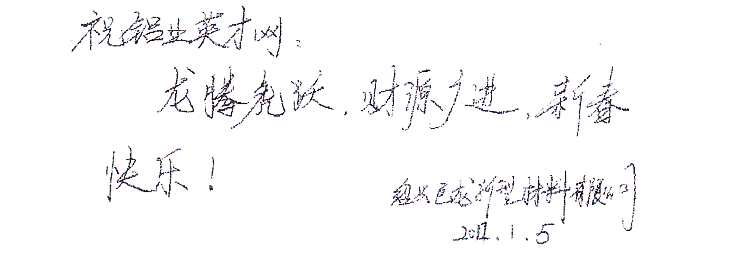 祝铝业英才网：
龙腾虎跃，财源广进，新春
快乐！
绍兴巨龙新型材料有限公司
2012.1.5